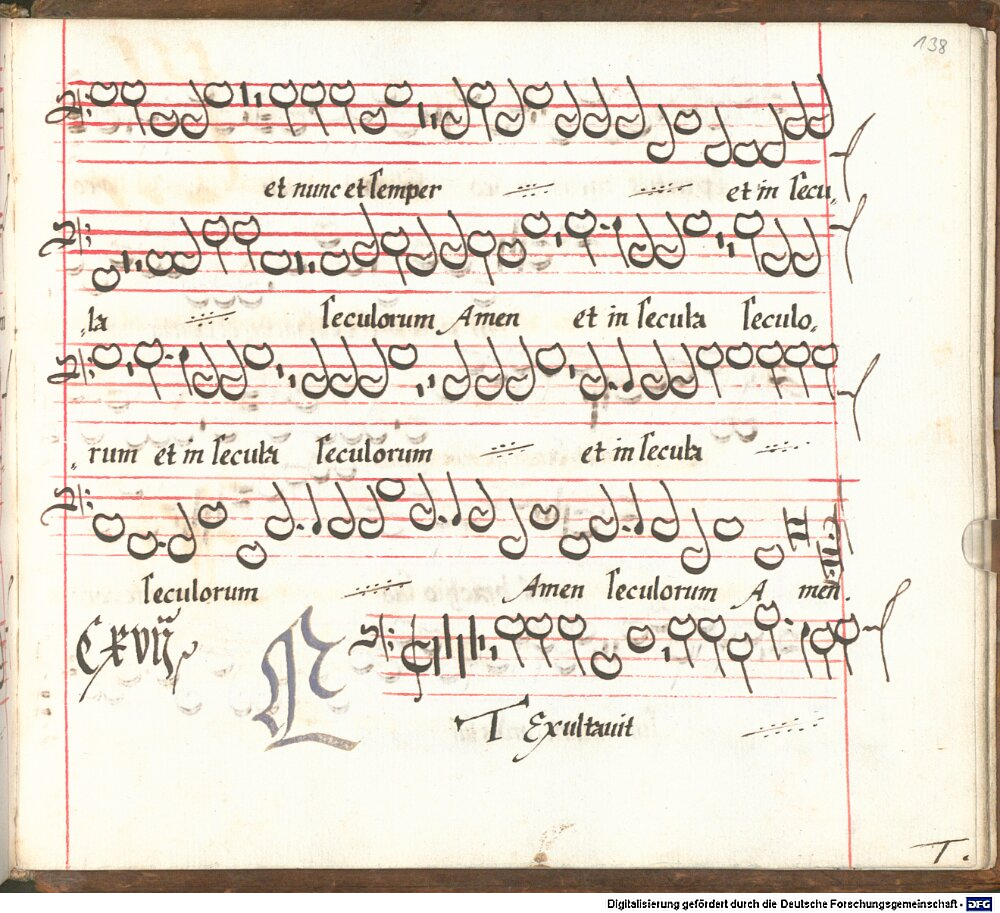 138
et nunc et semper ·//· ·//· et in secu,
,la ·//· seculorum Amen et in secula seculo,
,rum et in secula seculorum ·//· et in secula ·//·
seculorum ·//· Amen seculorum A men.
CXVIJ
ET Exultauit ·//·
T.
Digitalisierung gefördert durch die Deutsche Forschungsgemeinschaft - DFG